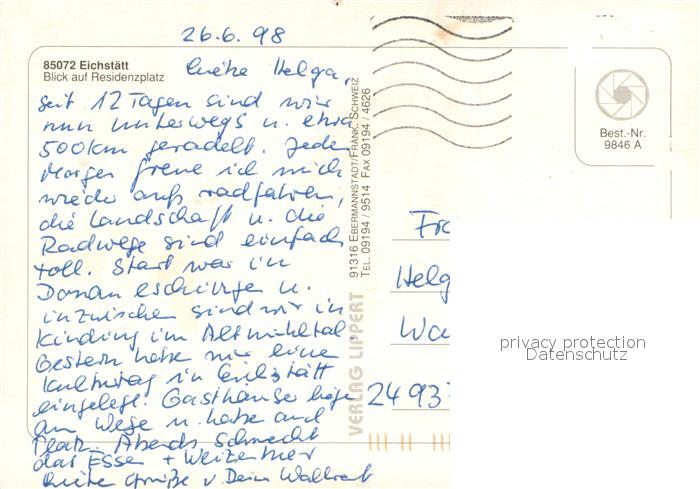 26.6.98
85072 Eichstätt
Blick auf Residenzplatz
Liebe Helga,
seit 12 Tagen sind wir
nun unterwegs u. etwa
500 km geradelt. Jeden
Morgen freue ich mich
wieder aufs radfahren,
die Landschaft u. die
Radwege sind einfach
toll. Start war in
Donaueschingen u.
inzwischen sind wir in
Kinding im Altmühltal.
Gestern haben wir eine
Kulturtag in Eichstätt
eingelegt. Gasthäuser liegen
am Wege u. haben auch
Platz. Abends schmeckt
das Essen + Weizenbier
Liebe Grüße v. Dein
VERLAG LIPPERT
91316 EBERMANNSTADT/FRÄNK. SCHWEIZ
TEL. 09194 / 9514 FAX 09194 / 4626
Best.-Nr.
9846 A
Fr
Helg
Wa
2493
privacy protection
Datenschutz